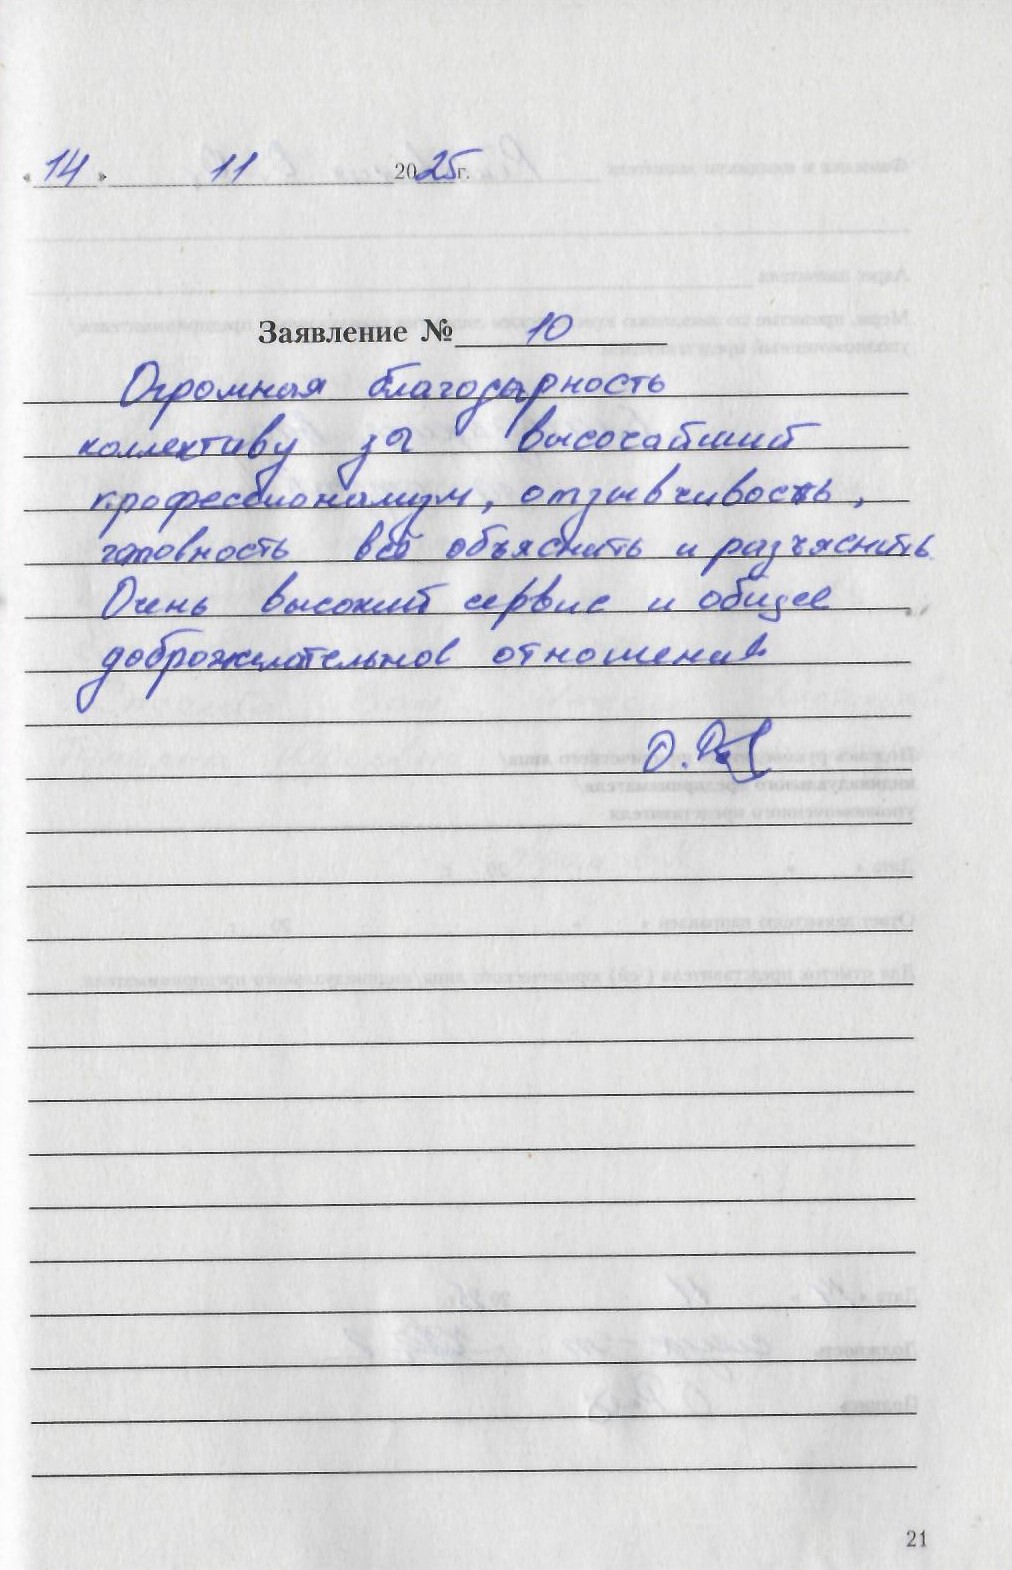 «14» 11 2025г.
Заявление № 10
Огромная благодарность
коллективу за высочайший
профессионализм, отзывчивость,
готовность всё объяснить и разъяснить
Очень высокий сервис и общее
доброжелательное отношение
О.
21